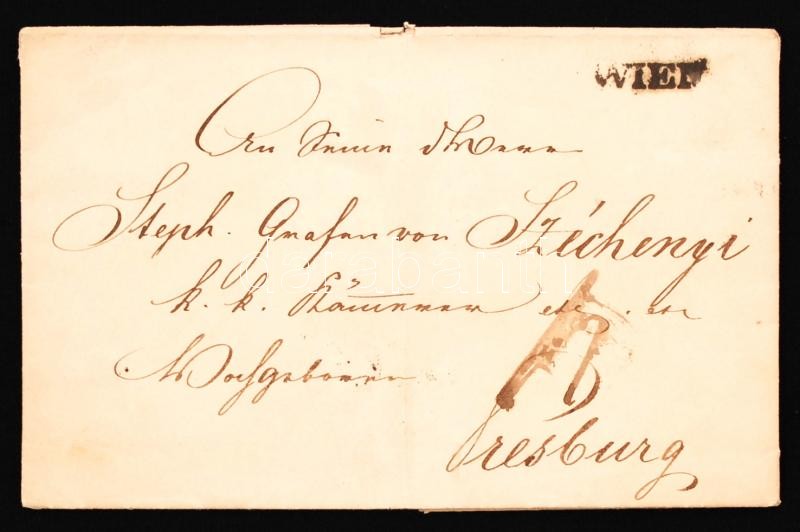 WIEN
An Seine des Herrn
Steph. Grafen von Széchenyi
k. k. Kämmerer etc. etc
Hochgeboren
Presburg